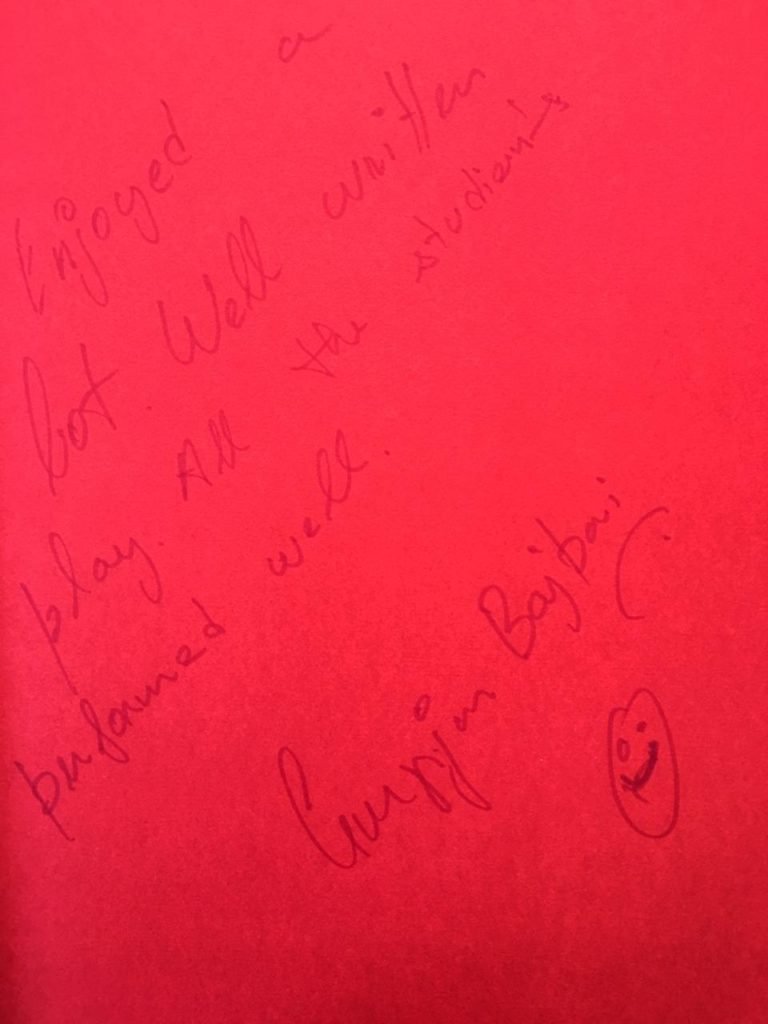 Enjoyed a
lot. Well written
play. All the studients
performed well.
Gunjan Bajbai